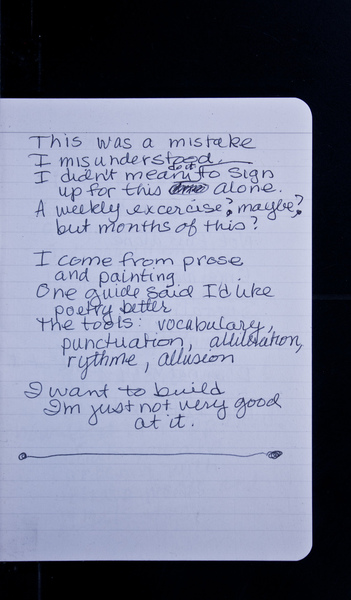 This was a mistake
I misunderstood.
I didn't mean to sign
do it
up for this alone.
A weekly excercise? maybe?
but months of this?
I come from prose
and painting
One guide said I'd like
poetry better
The tools: vocabulary,
punctuation, alliteration,
rythme, allusion
I want to build
I'm just not very good
at it.